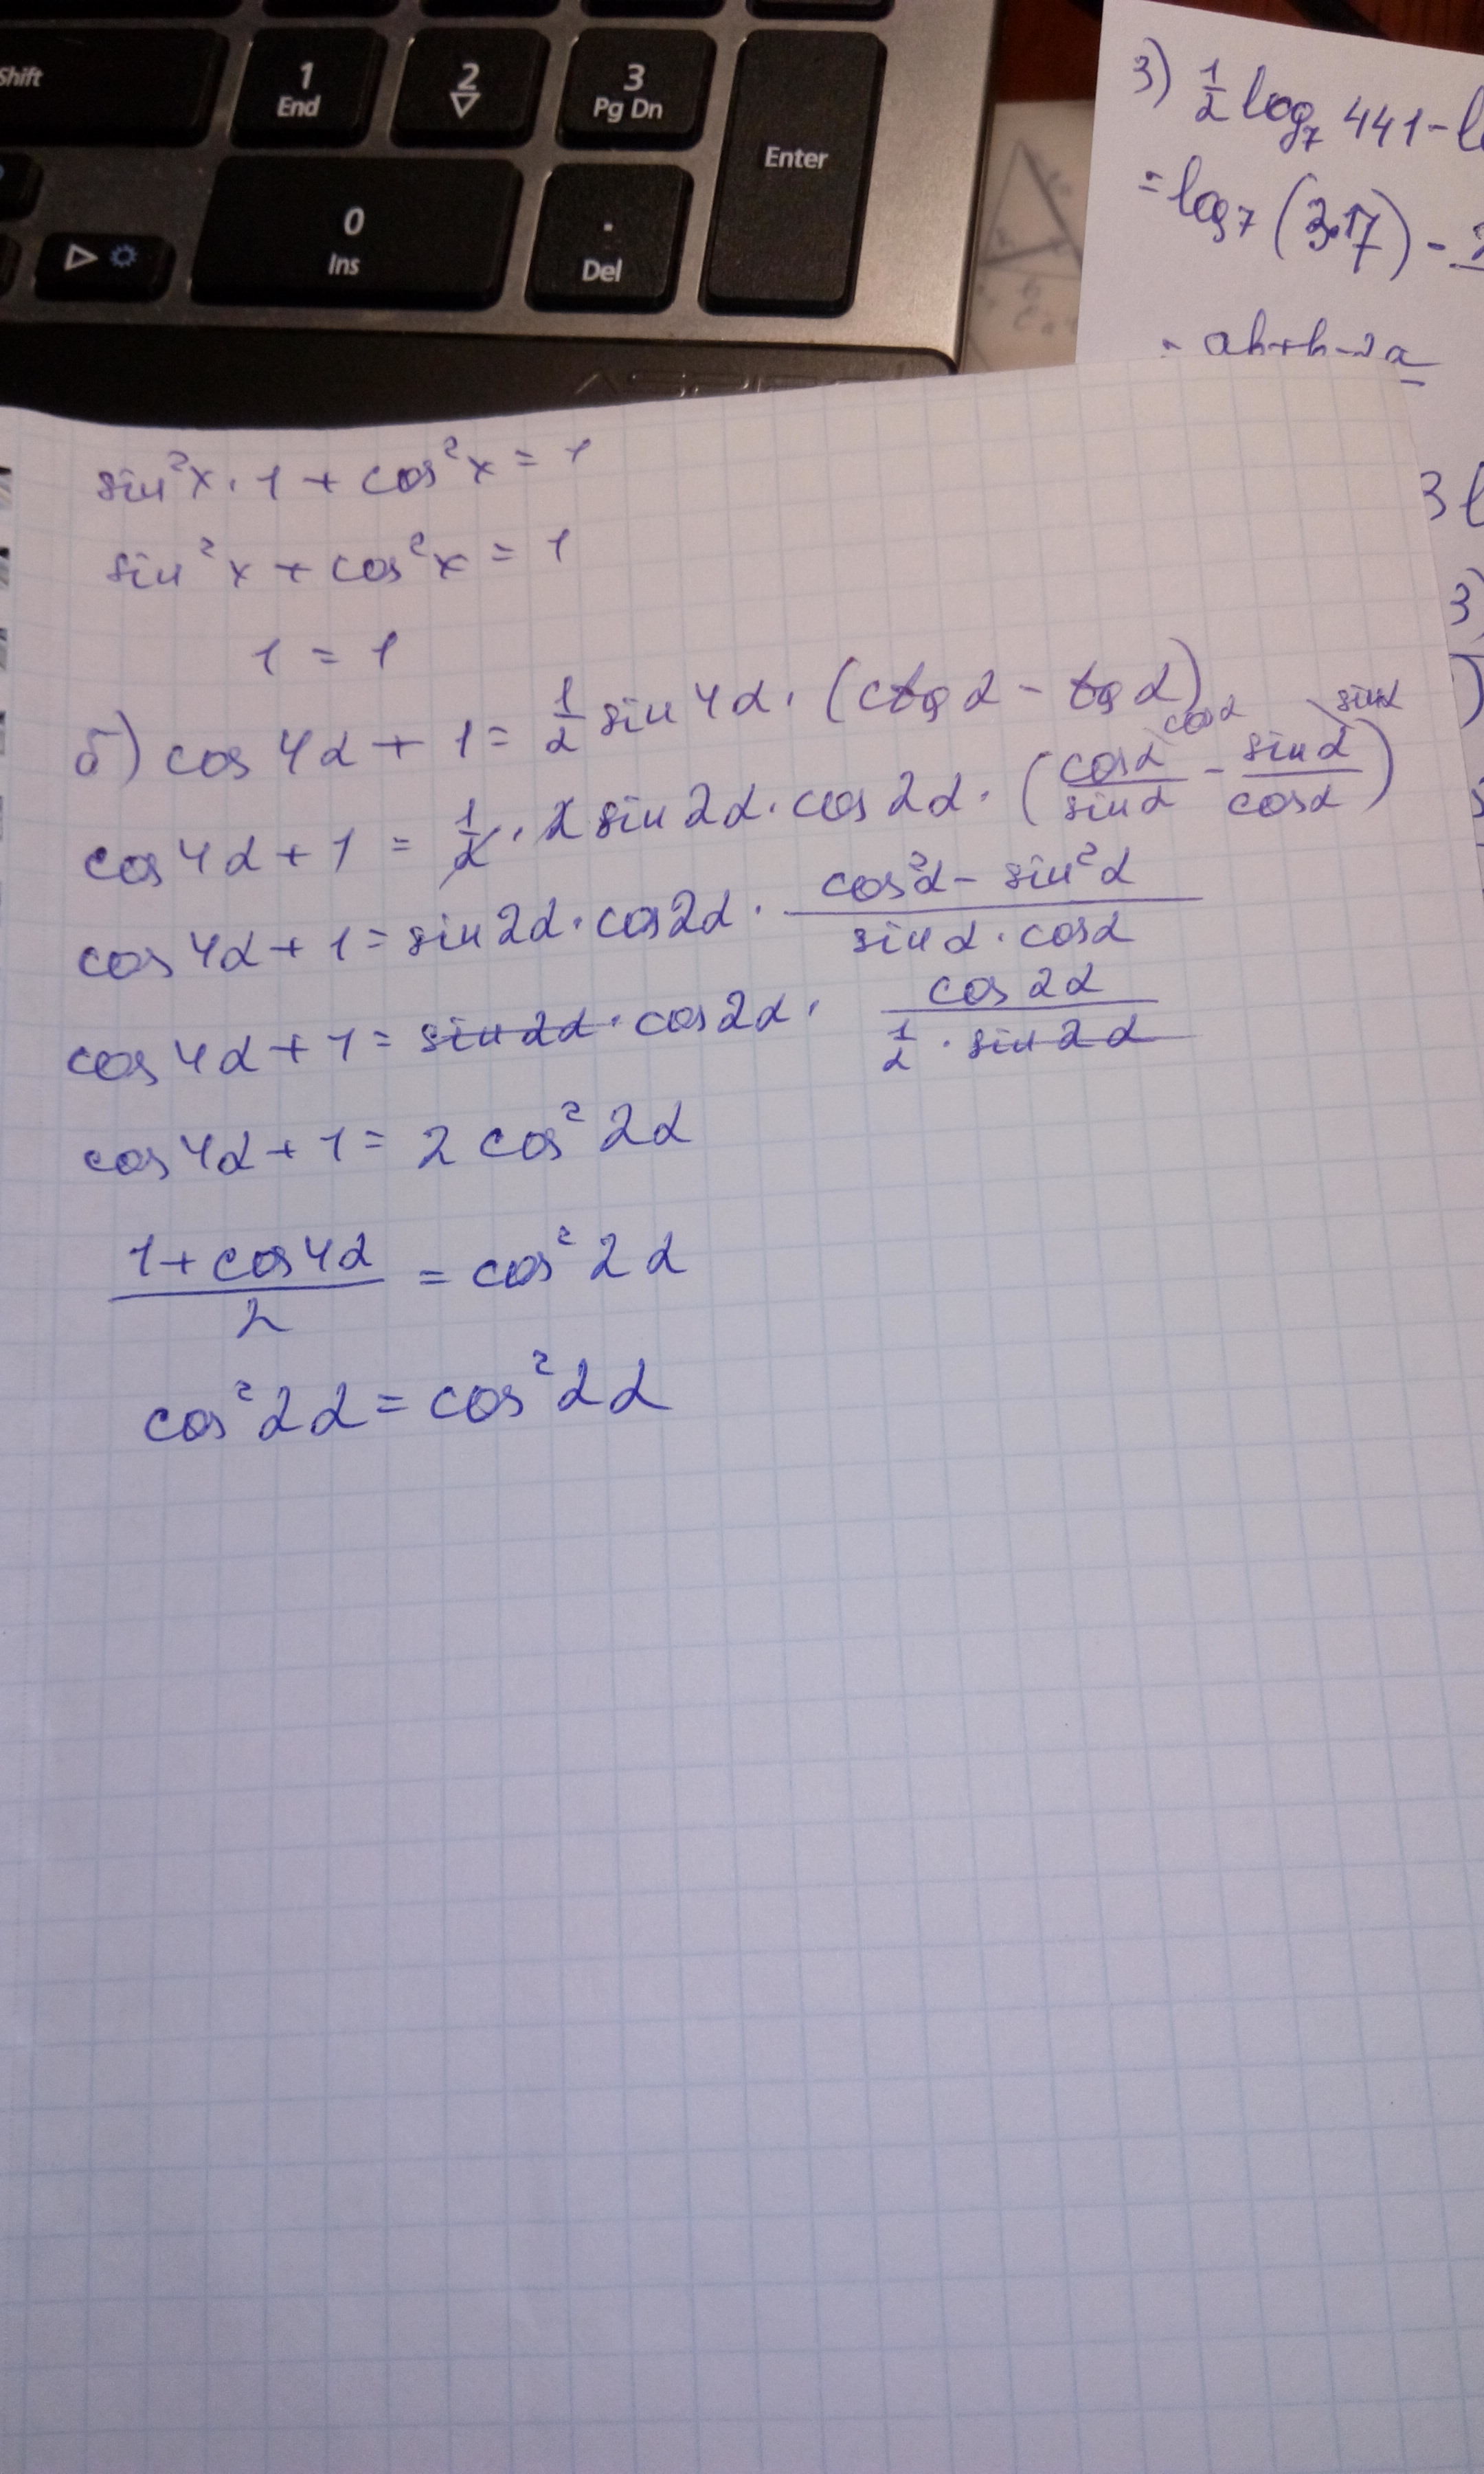 Shift
1
End
2
3
Pg Dn
Enter
0
Ins
.
Del
3) 1/2 log₇ 441 -
= log₇ (3·7) -
= ab+b-2a
3
3)
sin²x · 1 + cos²x = 1
sin²x + cos²x = 1
1 = 1
б) cos 4α + 1 = 1/2 sin 4α · (ctg α - tg α)
cos 4α + 1 = 1/2 · 2 sin 2α · cos 2α · (cosα/sinα \cosα - sinα/cosα \sinα)
cos 4α + 1 = sin 2α · cos 2α · (cos²α - sin²α)/(sin α · cos α)
cos 4α + 1 = sin 2α · cos 2α · cos 2α/(1/2 · sin 2α)
cos 4α + 1 = 2 cos² 2α
(1 + cos 4α)/2 = cos² 2α
cos² 2α = cos² 2α